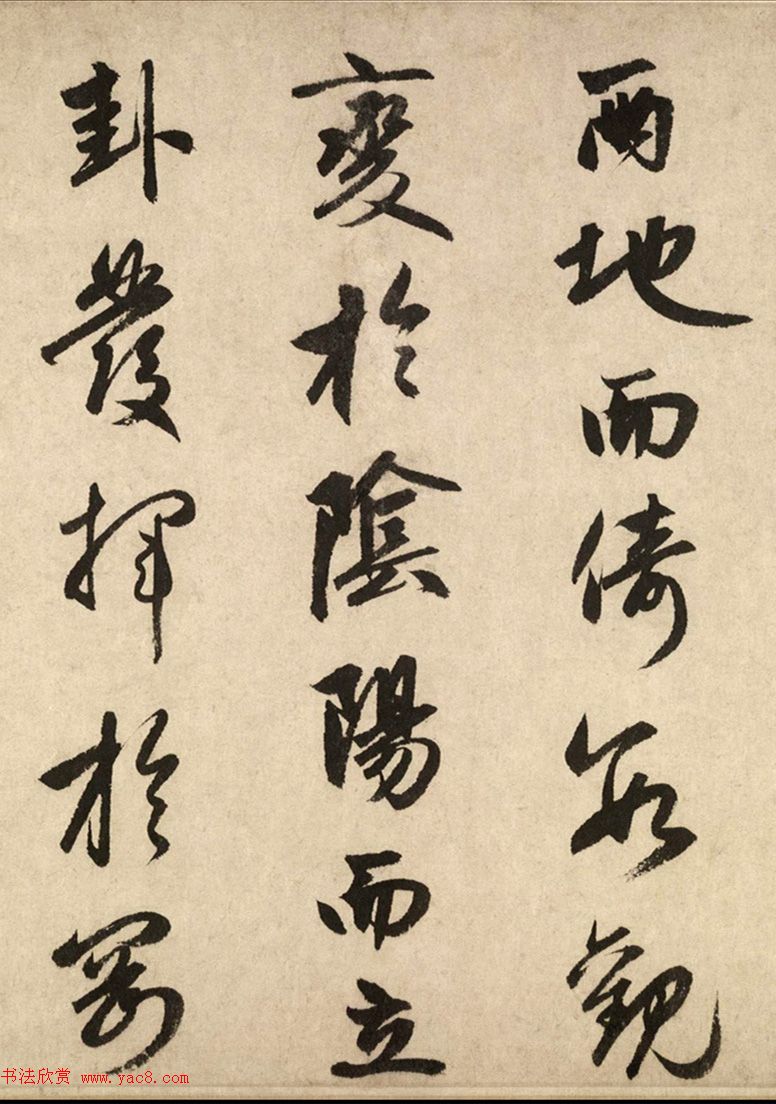 兩地而倚數觀
變於陰陽而立
卦發揮於剛
书法欣赏 www.yac8.com